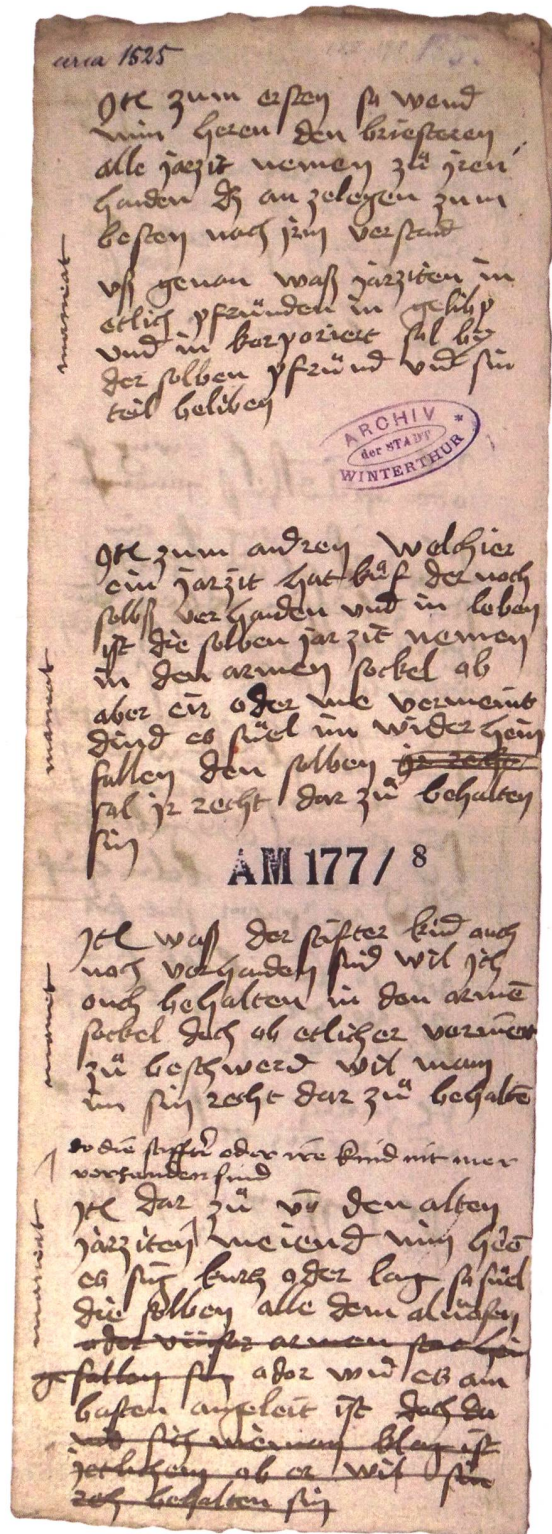 circa 1525
Itē zum ersten so wend
min heren den briesteren
alle jarzit nemen zů jren
handen dz an zelegen zum
besten nach jrm verstand
maneat
vß genon waß jarziten in
etlich pfrůnden in gelibt
und in korporiert sol by
der selben pfrůnd und sin
teil beliben
ARCHIV
der STADT
WINTERTHUR
Itē zum andren welchier
ein jarzit hat der noch
selbß verhanden und in leben
ist die selben jarzit nemen
in den armen seckel ob
maneat
aber eir oder me vermeint
es im wider heim
fallen den selben jr recht
sol jr recht dar zů behalten
sin
AM 177 / 8
Itē waß der stifter kind ouch
noch verhanden sind wil ich
ouch behalten in den armē
manet
seckel doch ob etlicher
zů beschwerd wil man
im sin recht dar zů behaltē
do die stiffter oder ire kind nit mer
verhanden sind
Itē dar zů vō den alten
jarziten meiend min herē
maneat
es sig kurtz oder lag so
die selben alle dem almůsen
oder armen
gefallen sin oder wie es am
basten angeleit ist doch da
sich nieman klag ist
jetlichem ob er wil sin
rch behalten sin